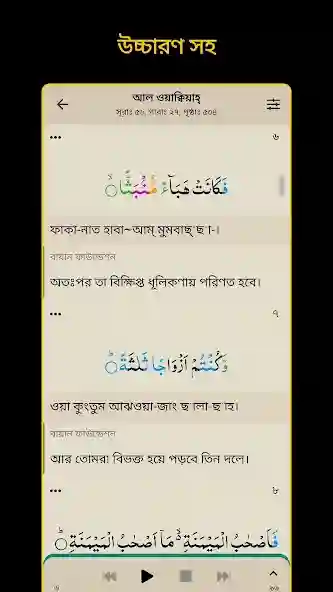 উচ্চারণ সহ
আল ওয়াক্বিয়াহ্
সূরাঃ ৫৬, পারাঃ ২৭, পৃষ্ঠাঃ ৫৩৪
৬
فَكَانَتْ هَبَآءً مُّنْۢبَثًّا ۙ
ফাকা-নাত হাবা~আম্ মুমবাছ্ ছা-।
বায়ান ফাউন্ডেশন
অতঃপর তা বিক্ষিপ্ত ধূলিকণায় পরিণত হবে।
৭
وَكُنْتُمْ اَزْوَاجًا ثَلٰثَةً ؕ
ওয়া কুংতুম আঝওয়া-জাং ছালা-ছাহ।
বায়ান ফাউন্ডেশন
আর তোমরা বিভক্ত হয়ে পড়বে তিন দলে।
৮
فَاَصْحٰبُ الْمَيْمَنَةِ ۙ مَاۤ اَصْحٰبُ الْمَيْمَنَةِ ؕ